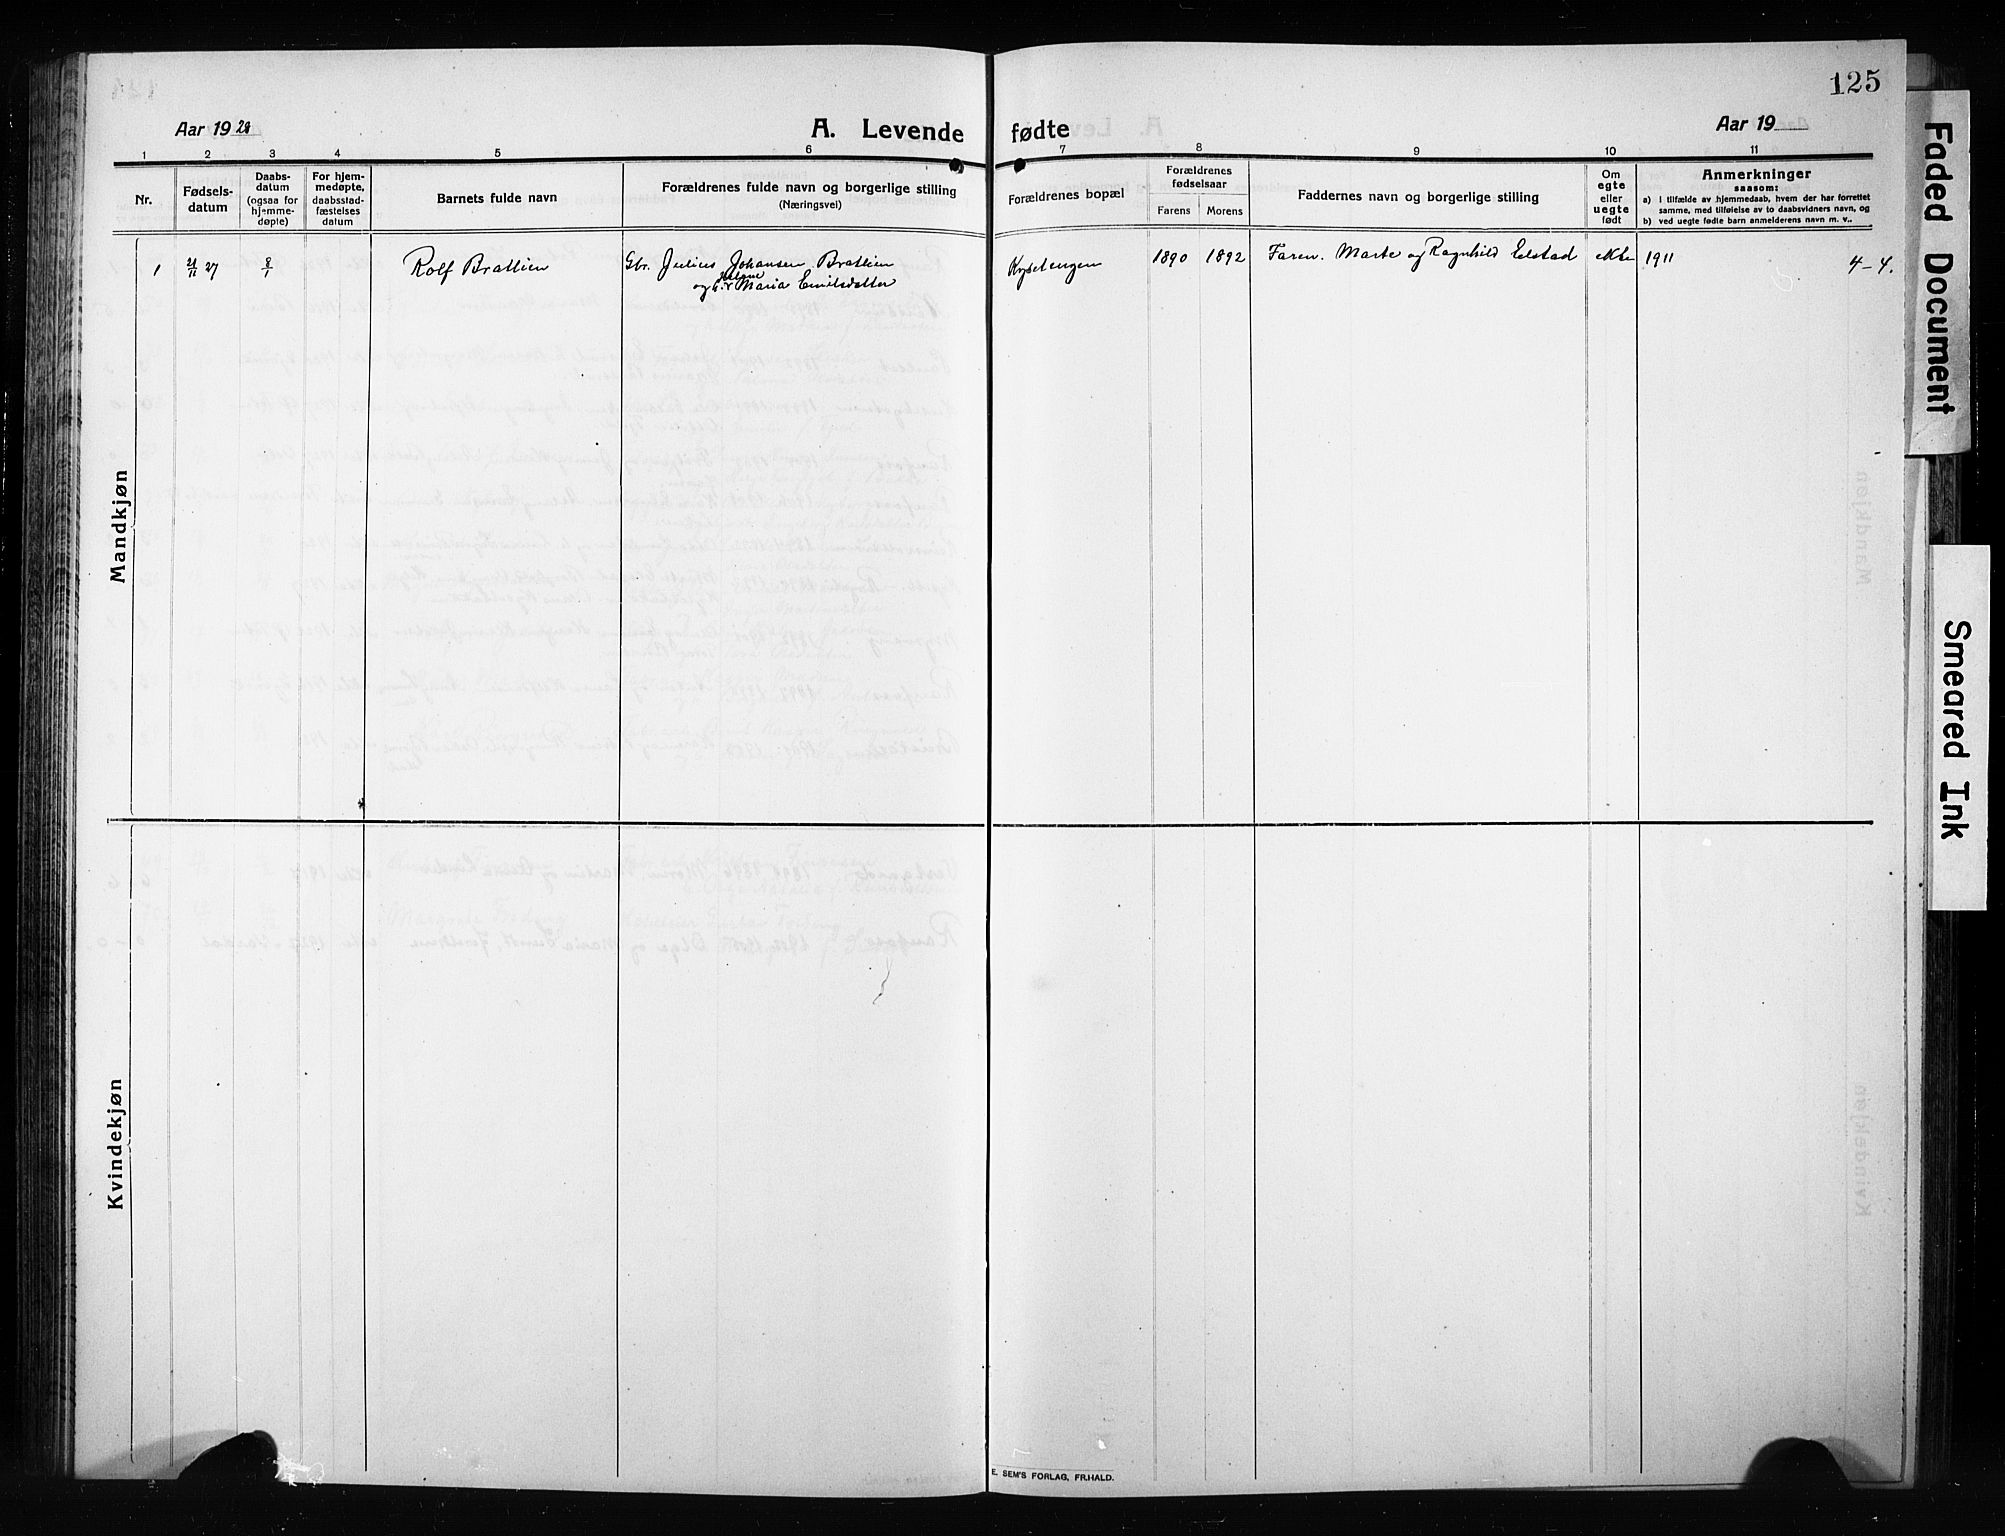 125
Aar 1928
A. Levende fødte
Aar 19
1 2 3 4 5 6 7 8 9 10 11
Nr.
Fødsels-
datum
Daabs-
datum
(ogsaa for
hjemme-
døpte)
For hjem-
medøpte,
daabsstad-
fæstelses
datum
Barnets fulde navn
Forældrenes fulde navn og borgerlige stilling
(Næringsvei)
Forældrenes bopæl
Forældrenes
fødselsaar
Farens Morens
Faddernes navn og borgerlige stilling
Om
egte
eller
uegte
født
Anmerkninger
saasom:
a) i tilfælde av hjemmedaab, hvem der har forrettet
samme, med tilføielse av to daabsvidners navn, og
b) ved uegte fødte barn anmelderens navn m. v..
Mandkjøn
1 21/11 27 8/1 Rolf Bratlien Gbr. Julius Johansen Bratlien
og Maria Emilsdatter
1890 1892 Faren. Marte og Ragnhild Elstad ekte 1911 4-4.
Kvindekjøn
E. SEM'S FORLAG, FR.HALD.
Faded Document
Smeared Ink